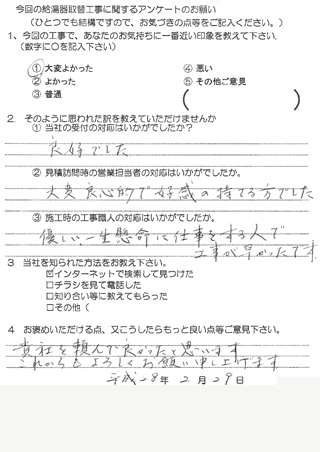 今回の給湯器取替工事に関するアンケートのお願い
(ひとつでも結構ですので、お気づきの点等をご記入ください。)
1、今回の工事で、あなたのお気持ちに一番近い印象を教えて下さい。
(数字に〇を記入下さい)
① 大変よかった ④ 悪い
② よかった ⑤ その他ご意見
③ 普通 ( )
2. そのように思われた訳を教えていただけませんか
① 当社の受付の対応はいかがでしたか？
良好でした
② 見積訪問時の営業担当者の対応はいかがでしたか。
大変良心的で好感の持てる方でした
③ 施工時の工事職人の対応はいかがでしたか。
優しい一生懸命に仕事をする人で
工事が早かったです
3 当社を知られた方法をお教え下さい。
☑インターネットで検索して見つけた
□チラシを見て電話した
□知り合い等に教えてもらった
□その他（
4 お褒めいただける点、又こうしたらもっと良い点等ご意見下さい。
貴社を頼んで良かったと思います
これからもよろしくお願い申し上げます
平成28年2月29日